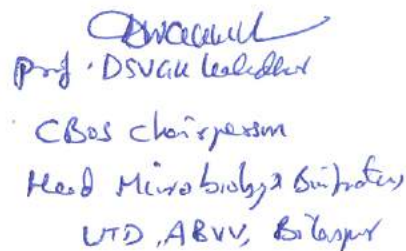 Prof. DSVGK Kaladhar
CBoS Chairperson
Head Microbiology & Bioinformatics
UTD, ABVV, Bilaspur